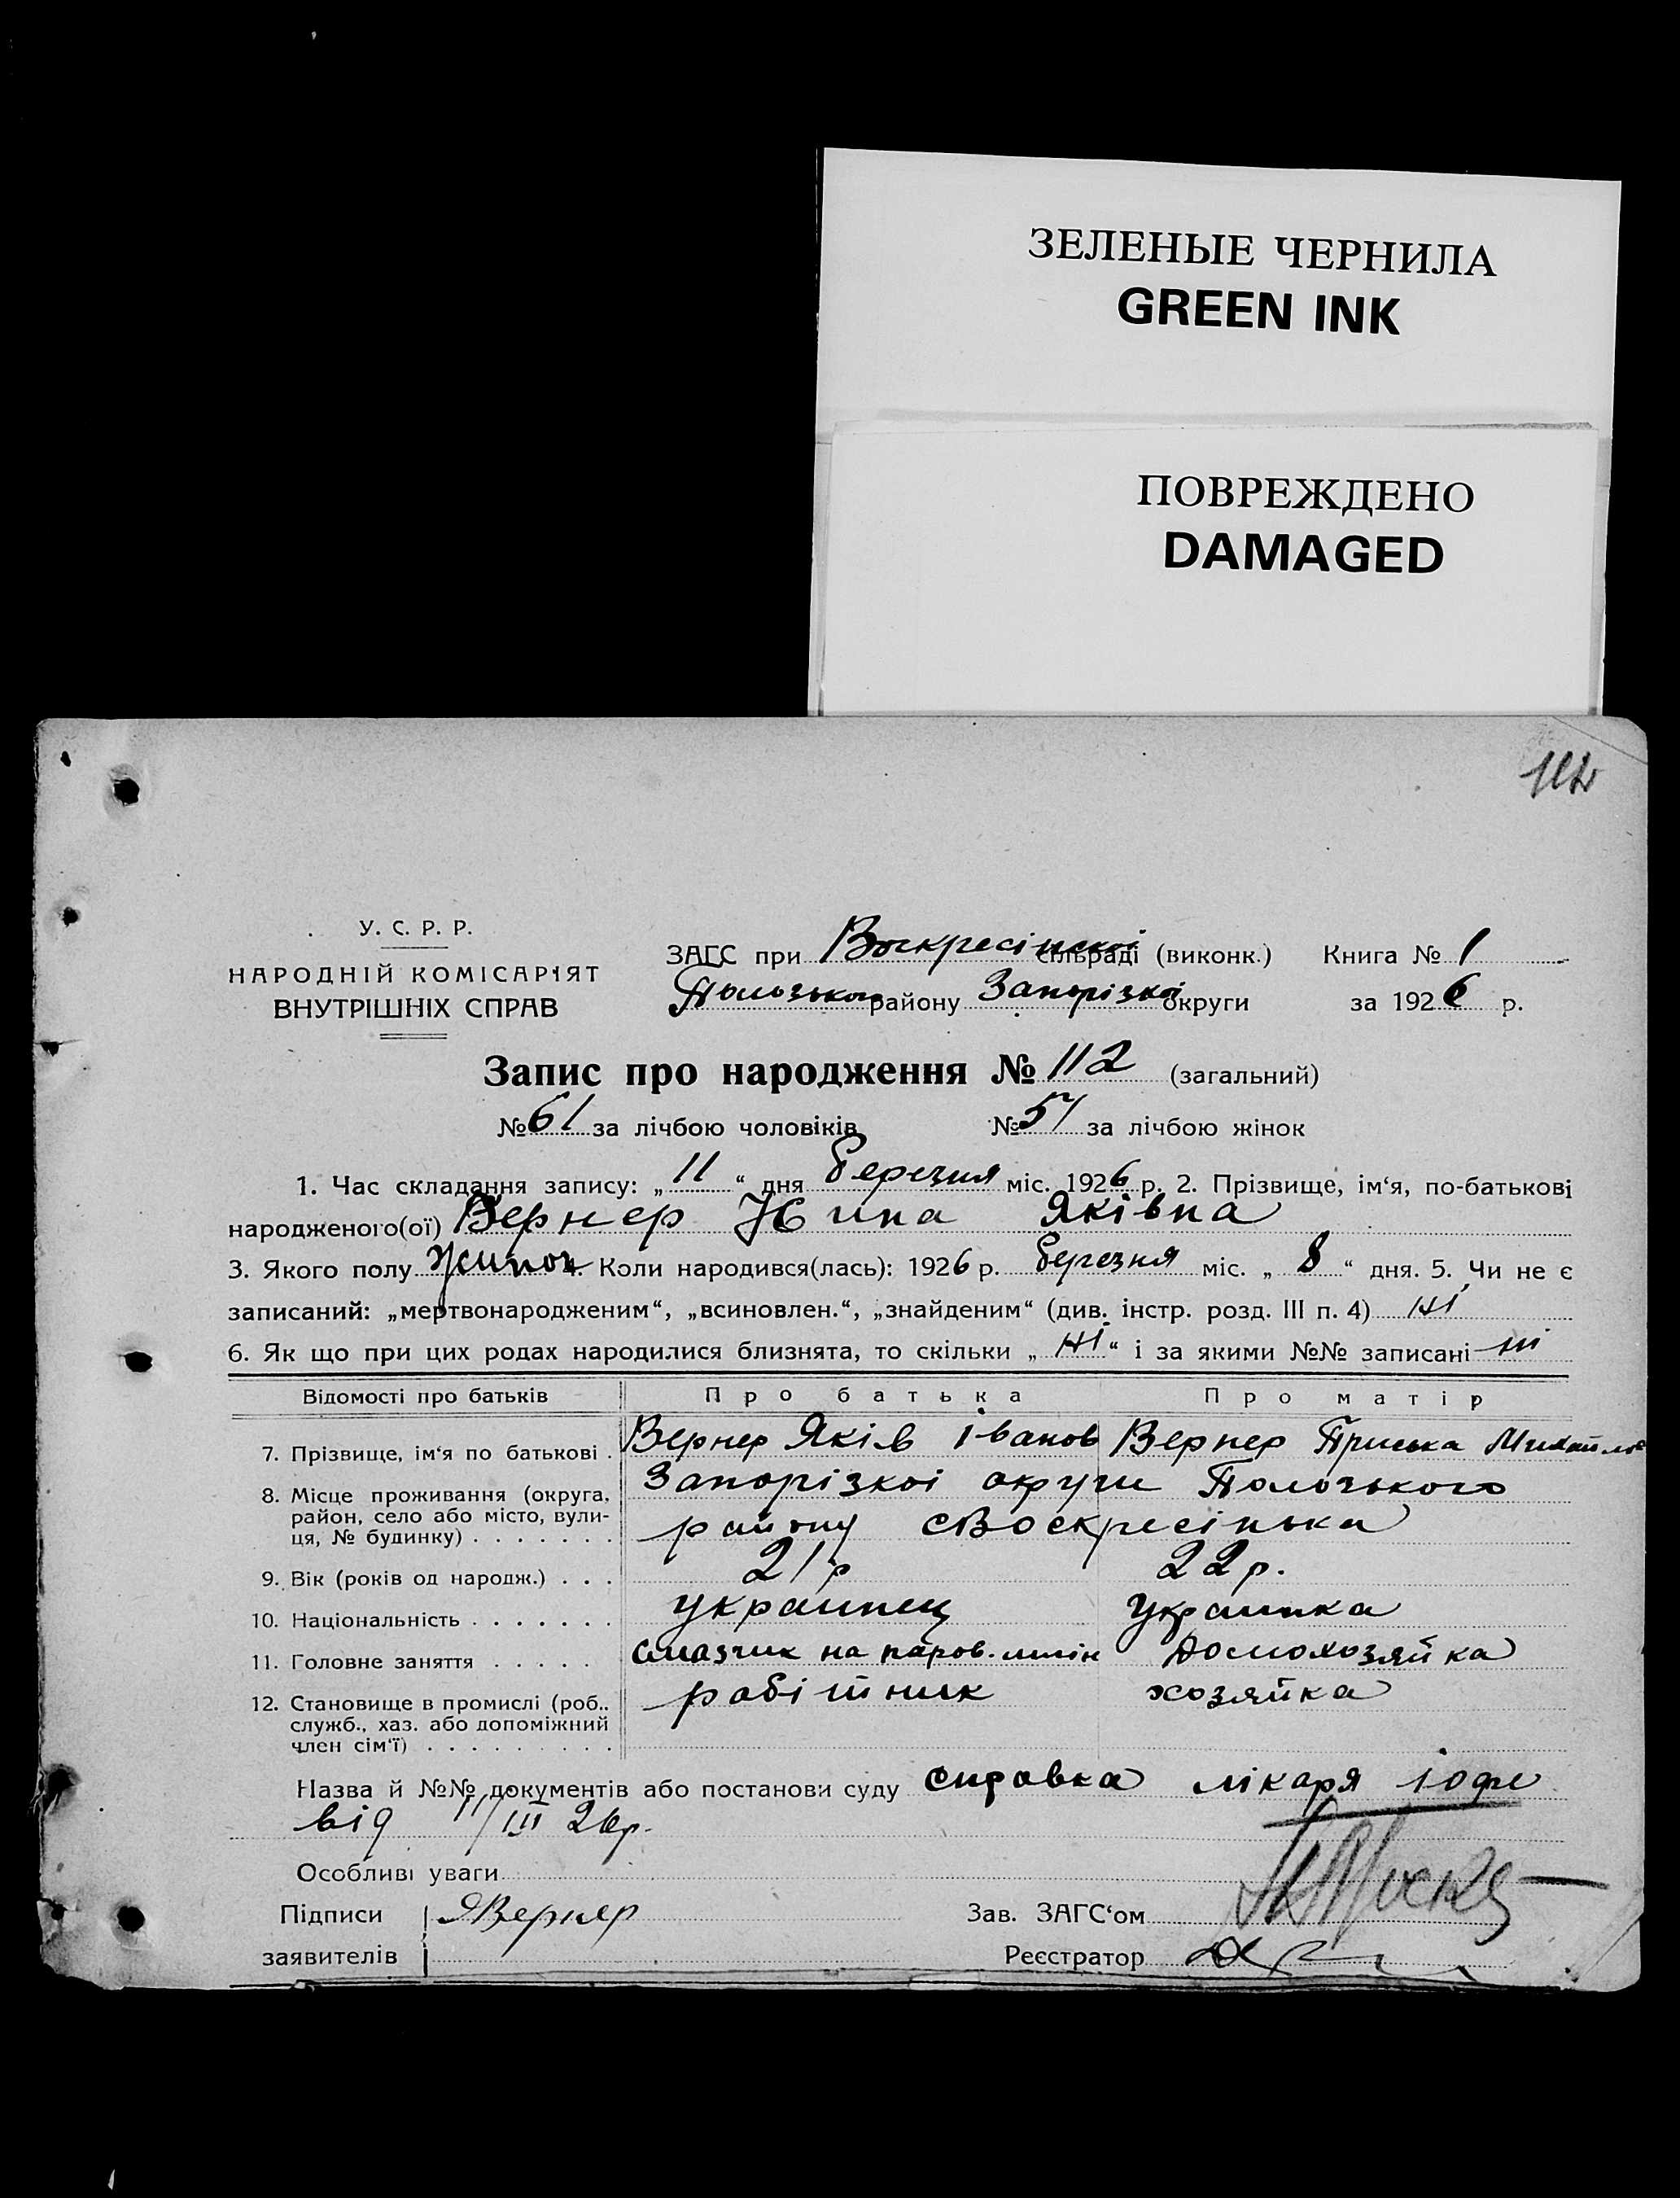 ЗЕЛЕНЫЕ ЧЕРНИЛА
GREEN INK
ПОВРЕЖДЕНО
DAMAGED
112
У. С. Р. Р.
НАРОДНІЙ КОМІСАРІЯТ
ВНУТРІШНІХ СПРАВ
ЗАГС при Воскресінскої сільраді (виконк.) Книга № 1
Пологського району Запорізкої округи за 1926 р.
Запис про народження № 112 (загальний)
№ 61 за лічбою чоловіків № 51 за лічбою жінок
1. Час складання запису: „11“ дня березня міс. 1926 р. 2. Прізвище, ім‘я, по-батькові
народженого(ої) Вернер Нина Яківна
3. Якого полу 4. Коли народився(лась): 1926 р. березня міс. „8“ дня. 5. Чи не є
записаний: „мертвонародженим“, „всиновлен.“, „знайденим“ (див. інстр. розд. III п. 4) ні
6. Як що при цих родах народилися близнята, то скільки „ні“ і за якими №№ записані ні
Відомості про батьків Про батька Про матір
7. Прізвище, ім‘я по батькові . Вернер Яків Іванов Вернер Приська Михайлов
8. Місце проживання (округа, район, село або місто, вули-ця, № будинку) . . . . . . . Запорізкої округи Пологського
району с Воскресінька
9. Вік (років од народж.) . . . 21 р 22 р.
10. Національність . . . . . . . украинец Украинка
11. Головне заняття . . . . . смазчик на паров. млін домохозяйка
12. Становище в промислі (роб., служб., хаз. або допоміжний член сім‘ї) . . . . . . . . . робітник хозяйка
Назва й №№ документів або постанови суду справка лікаря Іофе
від 11/III 26р.
Особливі уваги
Підписи ЯВернер Зав. ЗАГС‘ом
заявителів Реєстратор